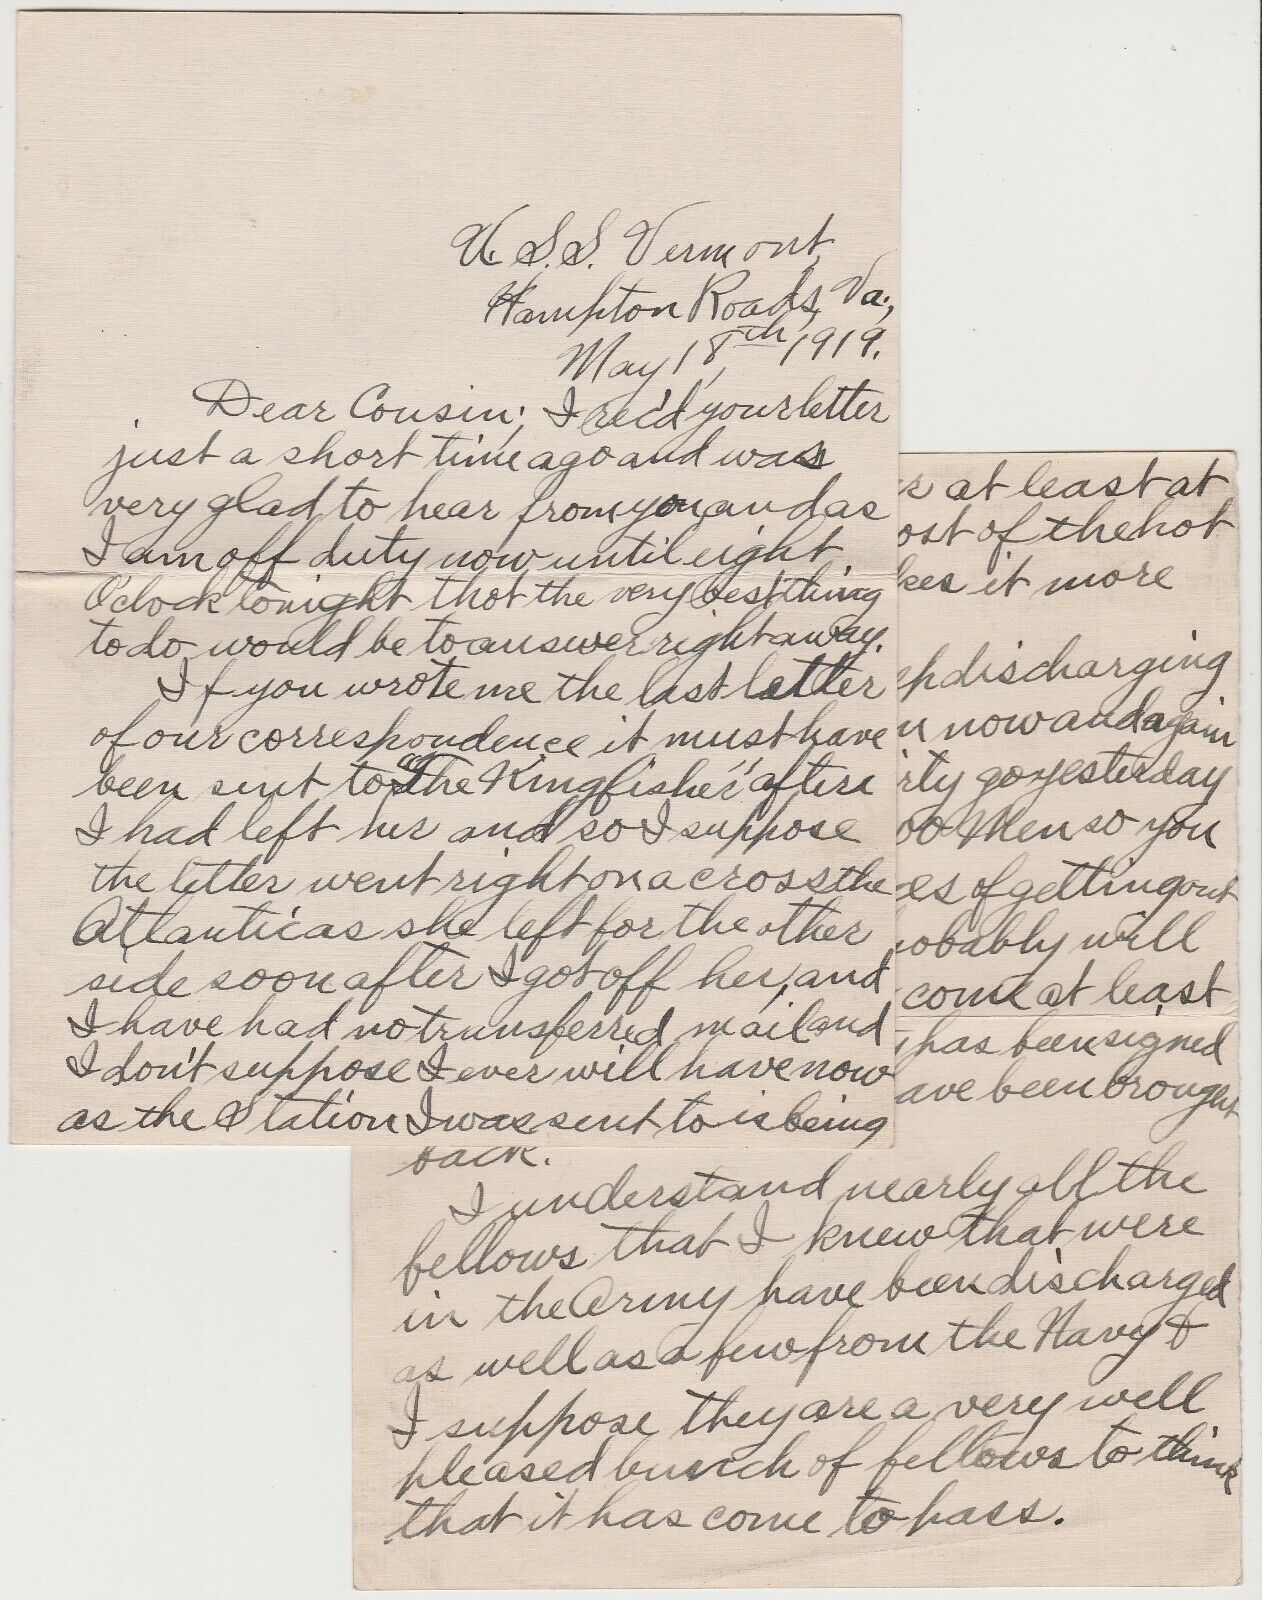 U.S.S. Vermont,
Hampton Roads, Va.,
May 18th, 1919.
Dear Cousin; I rec'd your letter
just a short time ago and was
very glad to hear from you and as
I am off duty now until eight
O'clock tonight thot the very best thing
to do would be to answer right away.
If you wrote me the last letter
of our correspondence it must have
been sent to "The Kingfisher" after
I had left her and so I suppose
the letter went right on across the
Atlantic as she left for the other
side soon after I got off her, and
I have had no transferred mail and
I don't suppose I ever will have now
as the Station I was sent to is being
at least at
ost of the hot
kes it more
discharging
now and again
rty go yesterday
00 Men so you
es of getting out
robably will
come at least
has been signed
ave been brought
back.
I understand nearly all the
fellows that I knew that were
in the Army have been discharged
as well as a few from the Navy &
I suppose they are a very well
pleased bunch of fellows to think
that it has come to pass.